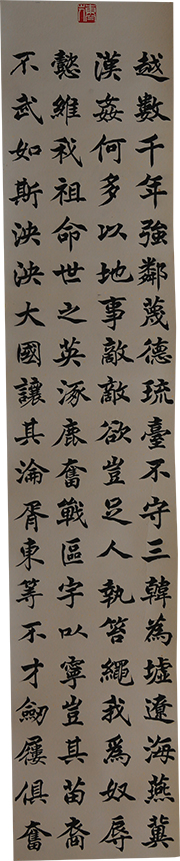 越數千年強鄰蔑德琉臺不守三韓為墟遼海燕冀
漢姦何多以地事敵敵欲豈足人執笞繩我爲奴辱
懿維我祖命世之英涿鹿奮戰區宇以寧豈其苗裔
不武如斯泱泱大國讓其淪胥東等不才劒屨俱奮